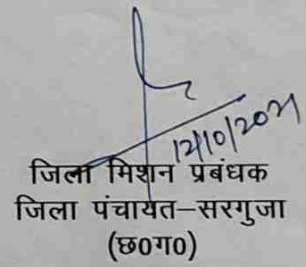 12/10/2021
जिला मिशन प्रबंधक
जिला पंचायत–सरगुजा
(छ0ग0)